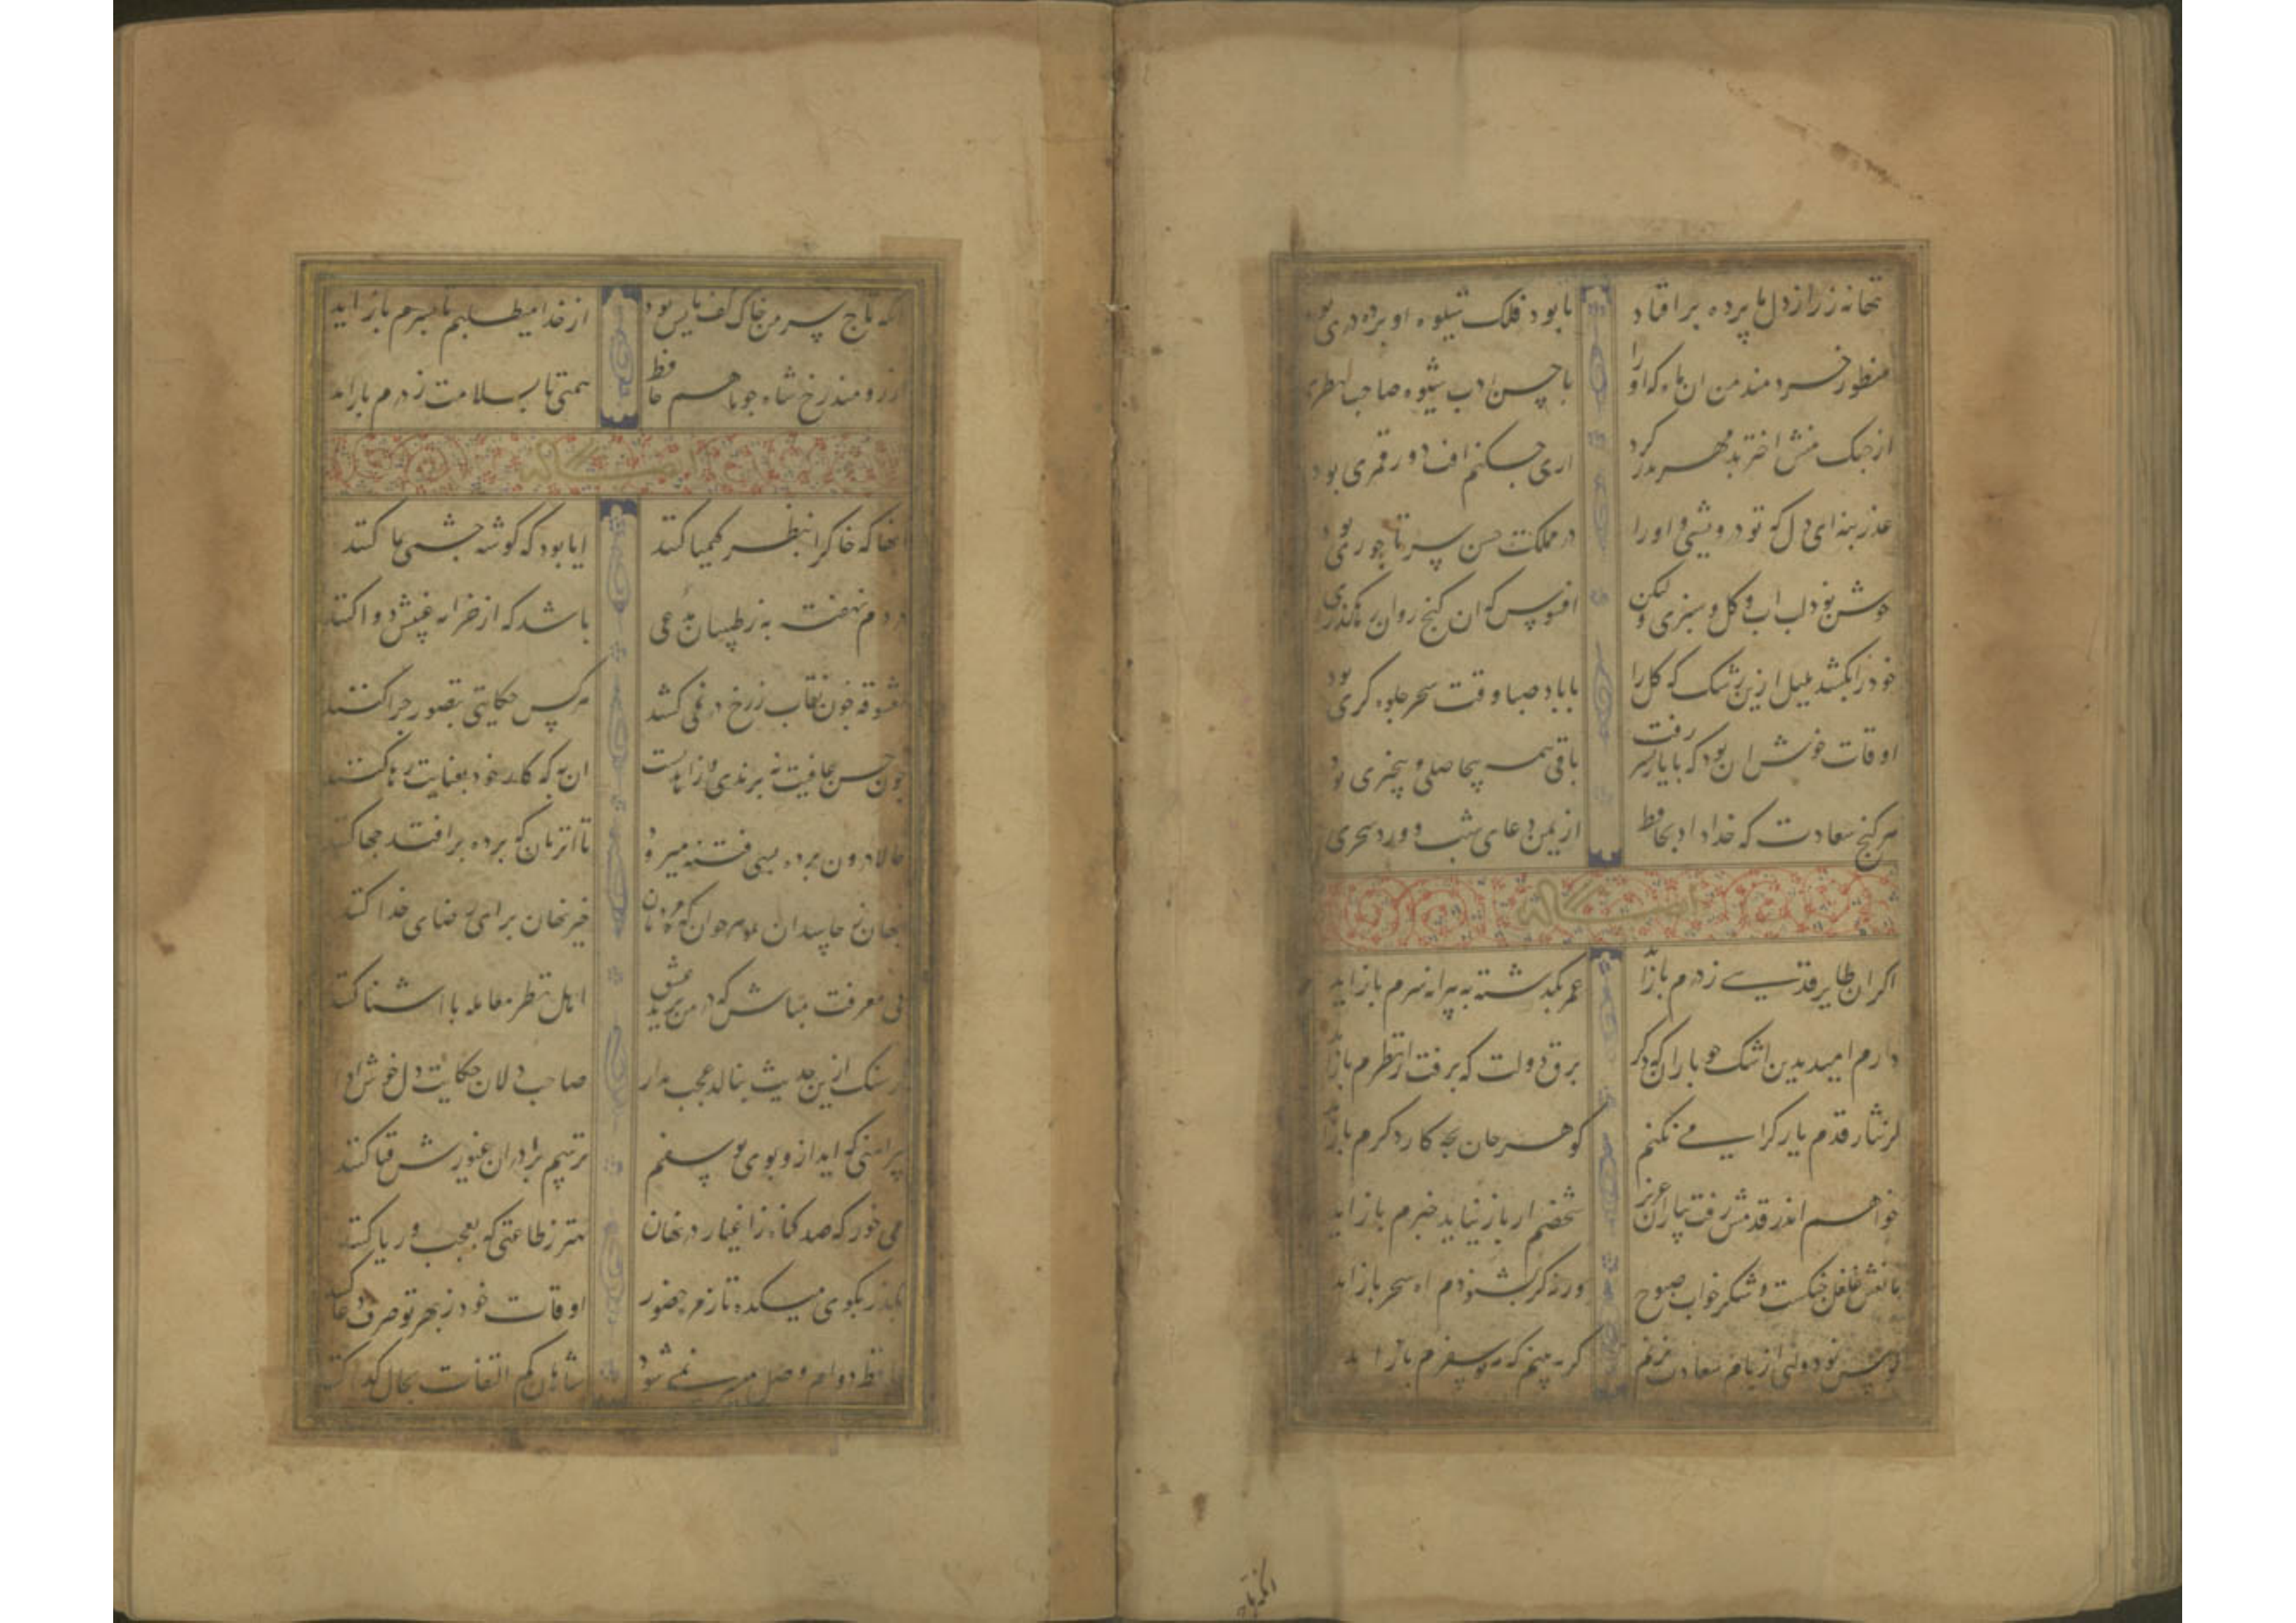 تنها نه ز راز دل ما پرده برافتاد
تا بود فلک شیوه او پرده دری بود
منظور خردمند من ان ماه که او را
با حسن ادب شیوه صاحب نظری
از چنک منش اختر بدمهر بدر کرد
اری چکنم افت دور قمری بود
عذر بنه ای دل که تو درویشی و او را
در مملکت حسن سر تاجوری بود
خوش بود لب اب و کل و سبزی و لیکن
افسوس که ان کنج روان رهکذری
خود را بکشد بلبل ازین رشک که کل را
با باد صبا وقت سحر جلوه کری بود
اوقات خوش ان بود که با یار بسر رفت
باقی همه بیحاصلی و بیخبری بود
هر کنج سعادت که خدا داد بحافظ
از یمن دعای شب و ورد سحری
اکر ان طایر قدسی ز درم باز اید
عمر بکذشته به پیرانه سرم باز اید
دارم امید بدین اشک چو باران که دکر
برق دولت که برفت از نظرم باز
کر نثار قدم یار کرامی نکنم
کوهر جان بچه کار دکرم باز
خواهم اندر قدمش رفت بیاران عزیز
شخصم ار باز نیاید خبرم باز اید
مانعش غلغل چنکست و شکر خواب صبوح
ورنه کر بشنود اه سحرم باز اید
کوس نو دولتی از بام سعادت بزنم
کر ببینم که مه نو سفرم باز اید
انکه تاج
انکه تاج سر من خاک کف پایش بود
از خدا میطلبم تا بسرم باز اید
ارزومند رخ شاه چو ماهم حافظ
همتی تا بسلامت ز درم باز اید
انها که خاک را بنظر کیمیا کنند
ایا بود که کوشه چشمی بما کنند
دردم نهفته به ز طبیبان مدعی
باشد که از خزانه غیبش دوا کنند
معشوقه چون نقاب ز رخ در نمی کشد
هر کس حکایتی بتصور چرا کنند
چون حسن عاقبت نه برندی و زاهدیست
ان به که کار خود بعنایت رها کنند
حالا درون پرده بسی فتنه میرود
تا انزمان که پرده برافتد چها کنند
خیر نهان برای رضای خدا کنند
بی معرفت مباش که در من یزید عشق
اهل نظر معامله با اشنا کنند
کر سنک ازین حدیث بنالد عجب مدار
صاحب دلان حکایت دل خوش ادا
پیراهنی که اید ازو بوی یوسفم
ترسم برادران غیورش قبا کنند
می خور که صد کناه ز اغیار در نهان
بهتر ز طاعتی که بعجب و ریا کنند
بکذر بکوی میکده تا زمره حضور
اوقات خود ز بهر تو صرف دعا کنند
حافظ دوام وصل میسر نمی شود
شاهان کم التفات بحال کدا کنند